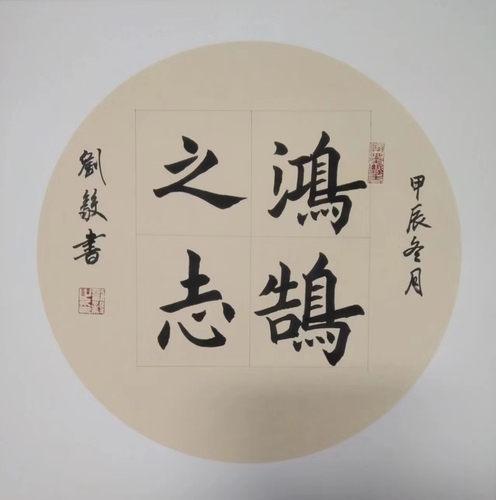 甲辰冬月
鴻鵠
之志
劉毅書